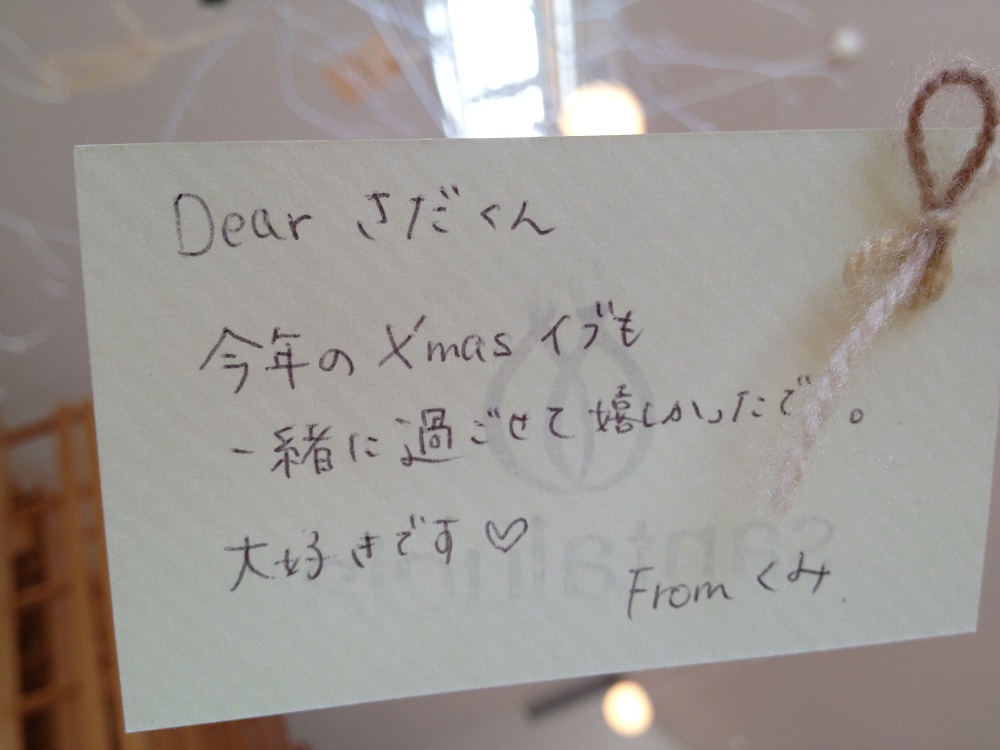 Dear さだくん
今年の X'mas イブも
一緒に過ごせて嬉しかったで 。
大好きです♡
From くみ.